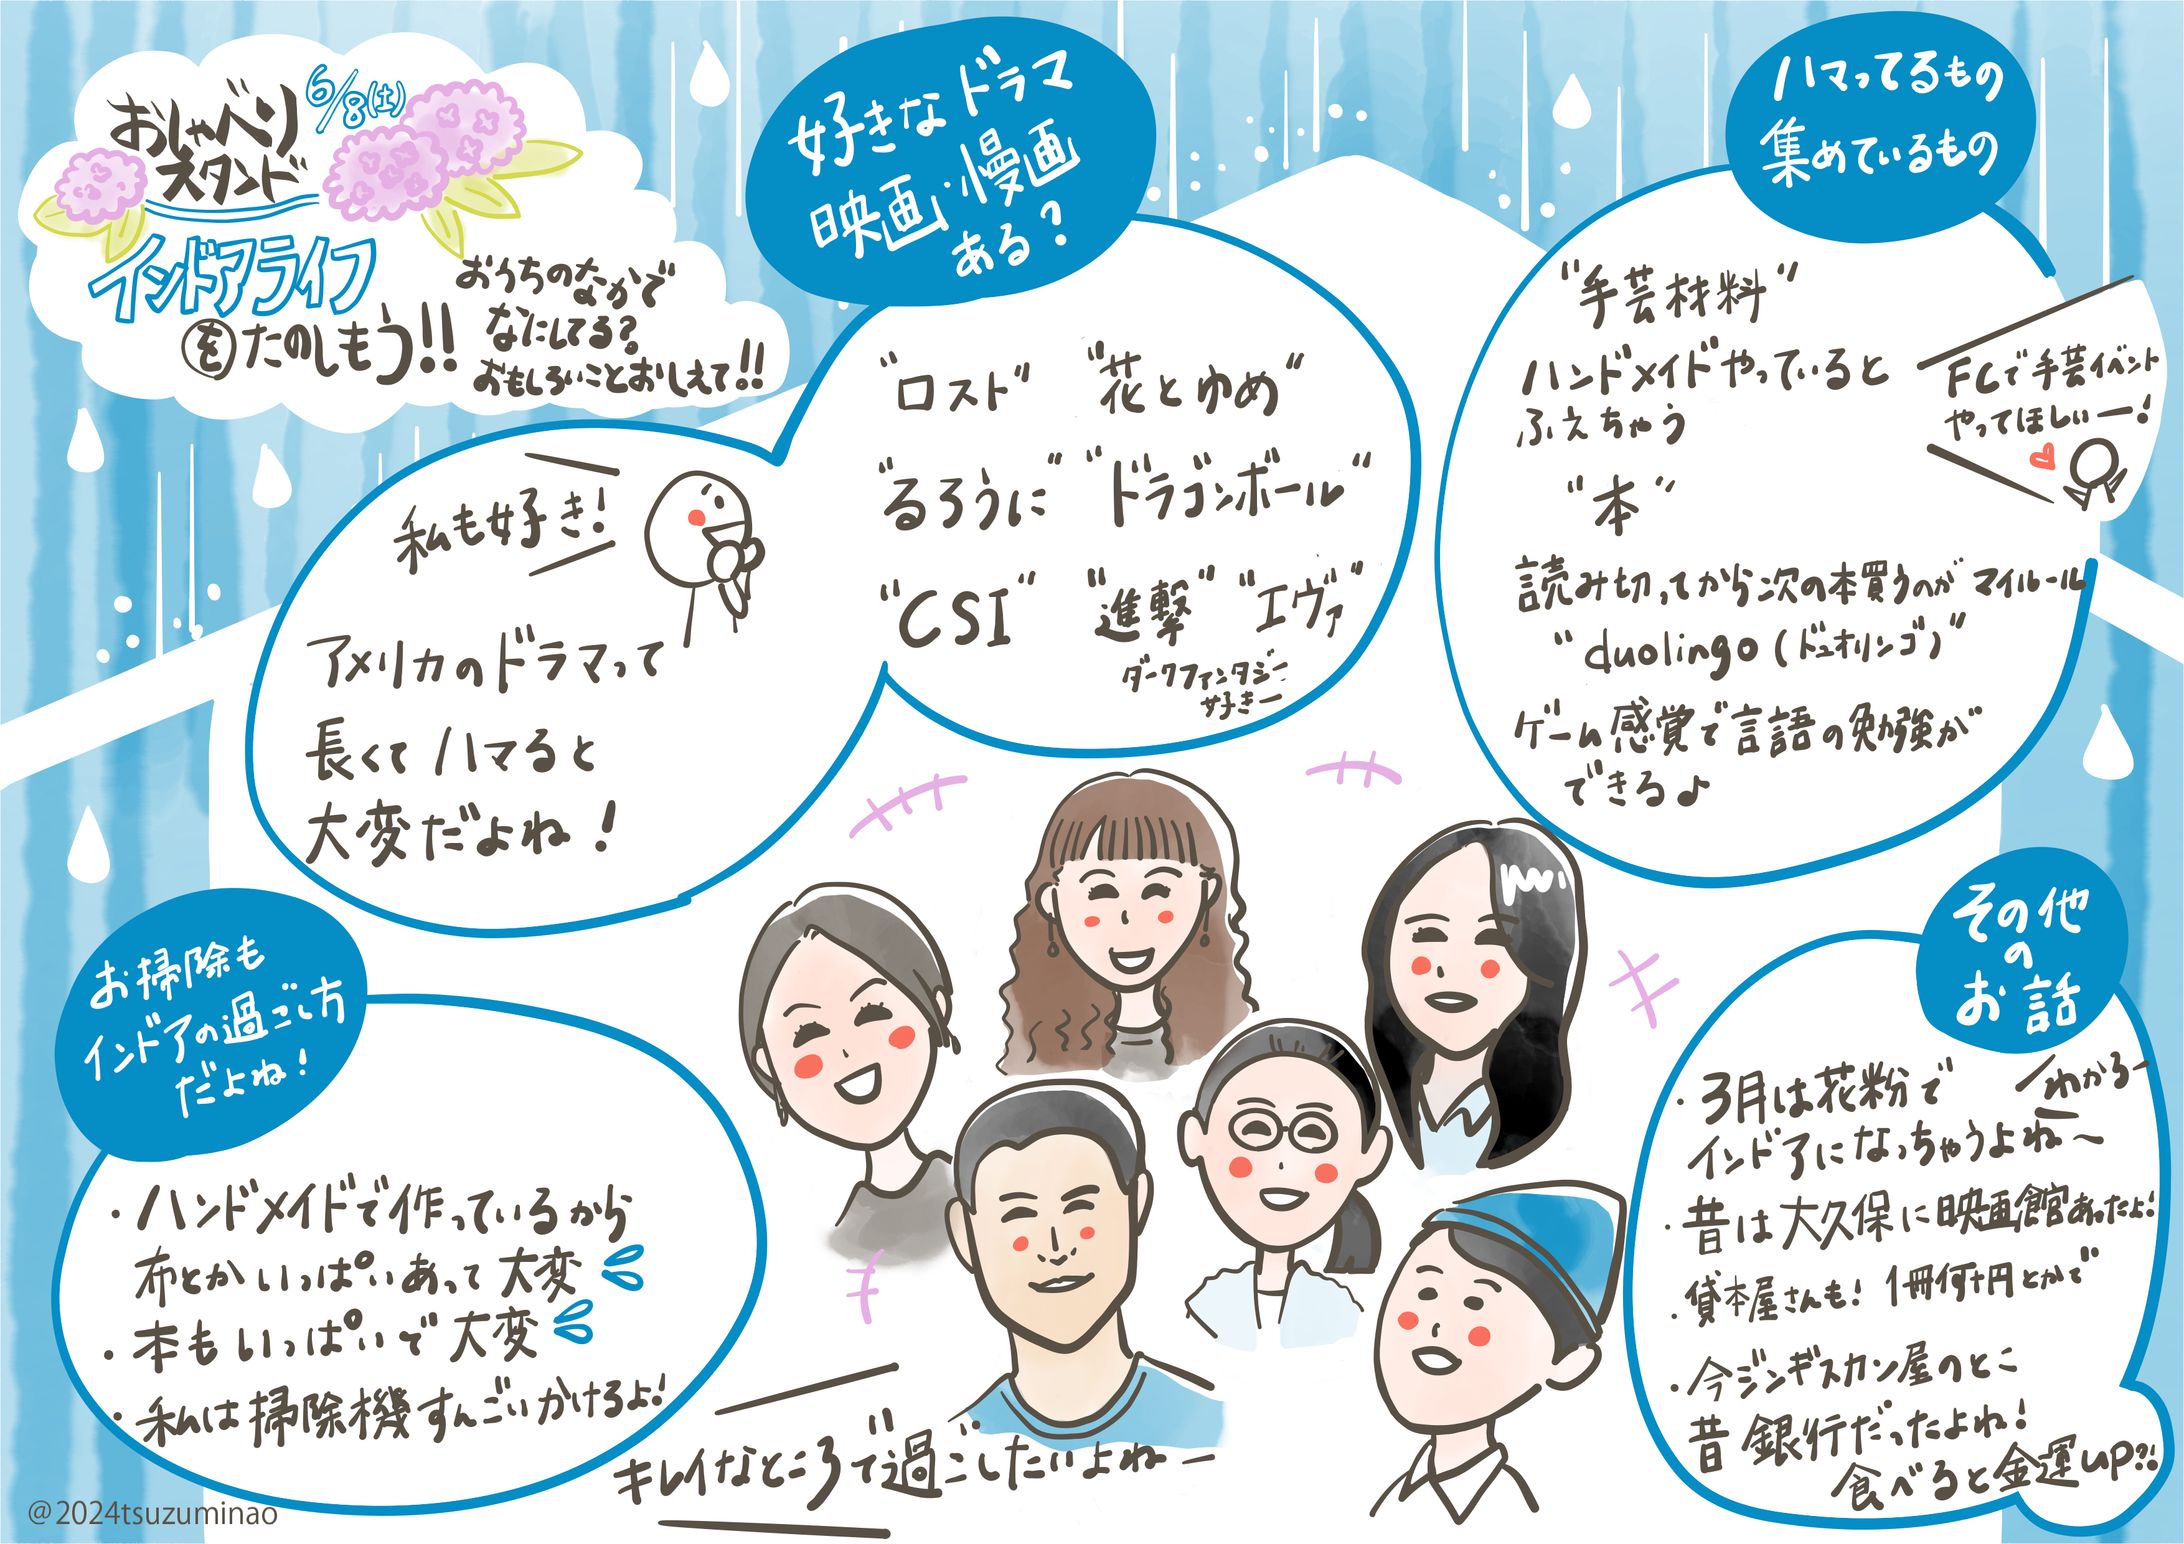 おしゃべり
スタンド
6/8(土)
インドアライフ
をたのしもう!!
おうちのなかで
なにしてる?
おもしろいことおしえて!!
好きなドラマ
映画・慢画
ある?
"ロスト" "花とゆめ"
"るろうに" "ドラゴンボール"
"CSI" "進撃" "エヴァ"
ダークファンタジー
好きー
私も好き!
アメリカのドラマって
長くてハマると
大変だよね!
ハマってるもの
集めているもの
"手芸材料"
ハンドメイドやっていると
ふえちゃう
FCで手芸イベント
やってほしいー!
"本"
読み切ってから次の本買うのがマイルール
"duolingo(ドュオリンゴ)"
ゲーム感覚で言語の勉強が
できる♪
お掃除も
インドアの過ごし方
だよね!
・ハンドメイドで作っているから
布とかいっぱいあって大変
・本もいっぱいで大変
・私は掃除機すんごいかけるよ!
キレイなところで過ごしたいよねー
その他
の
お話
・3月は花粉で
インドアになっちゃうよね〜
わかるー
・昔は大久保に映画館あったよ!
・貸本屋さんも!1冊何十円とかで
・今ジンギスカン屋のとこ
昔銀行だったよね!
食べると金運up?!
@2024tsuzuminao